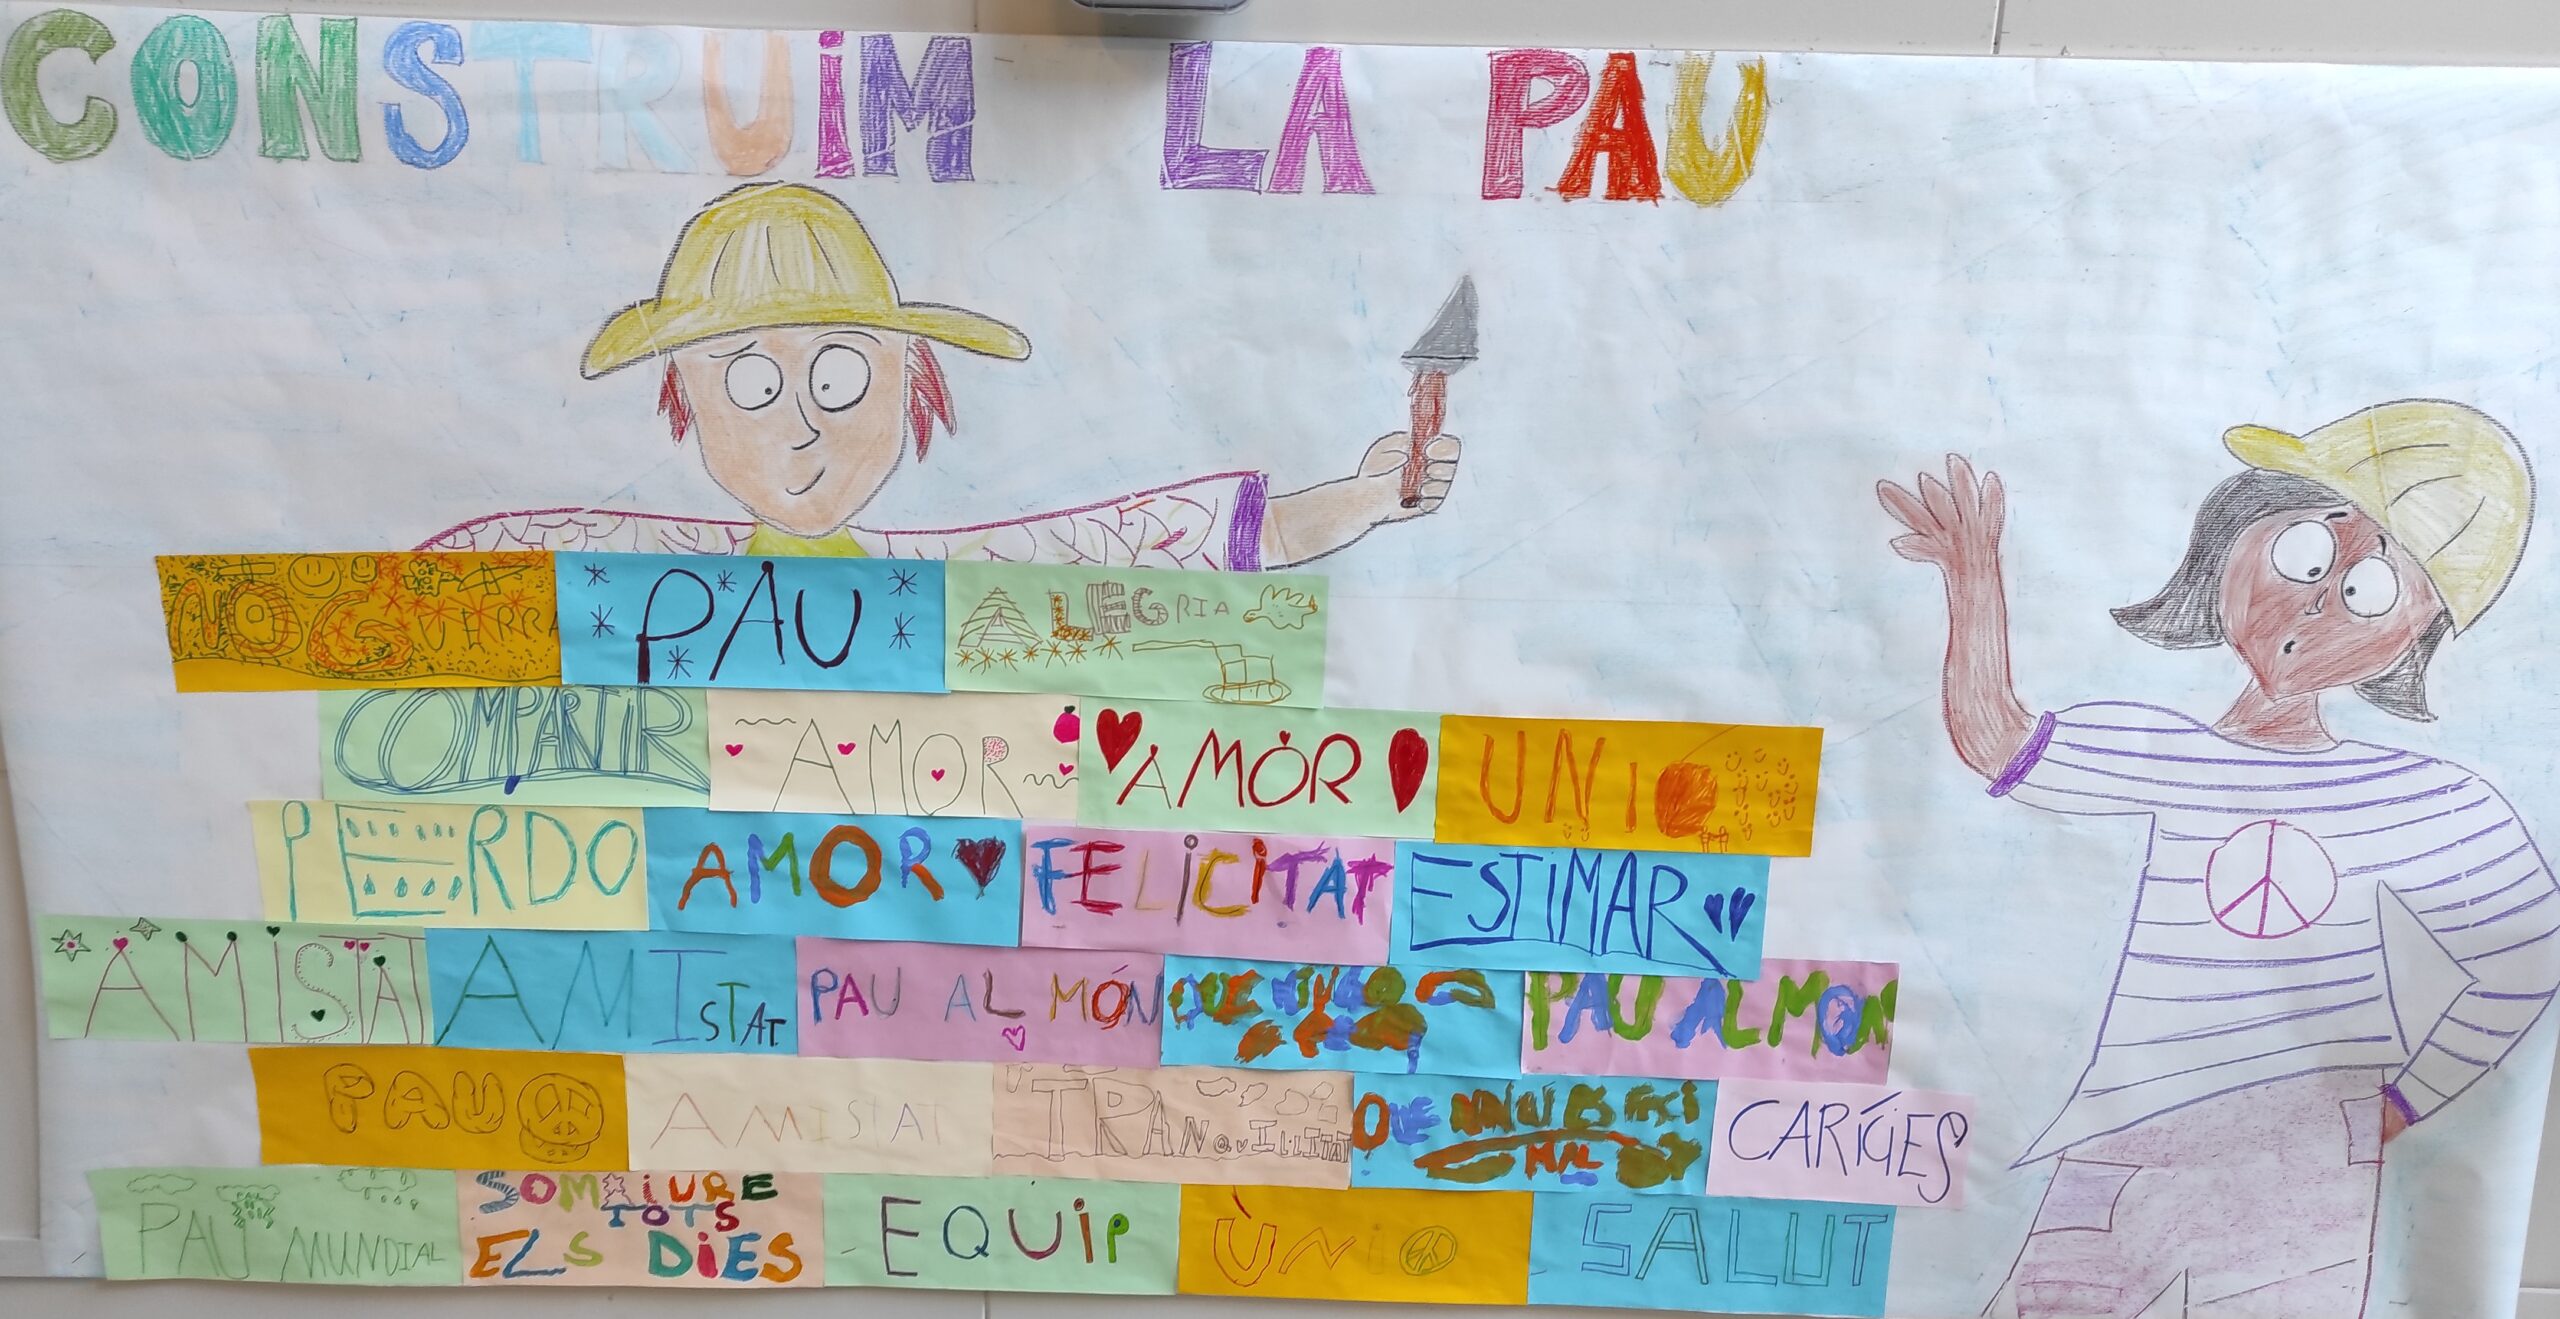 CONSTRUIM LA PAU
NO GUERRA
PAU
ALEGRIA
COMPARTIR
AMOR
AMOR
UNIO
PERDO
AMOR
FELICITAT
ESTIMAR
AMISTAT
AMISTAT
PAU AL MÓN
QUE
PAU AL MON
PAU
AMISTAT
TRANQUIL·LITAT
QUE
MAL
CARÍCIES
PAU MUNDIAL
SOMRIURE
TOTS
ELS DIES
EQUIP
UNIO
SALUT